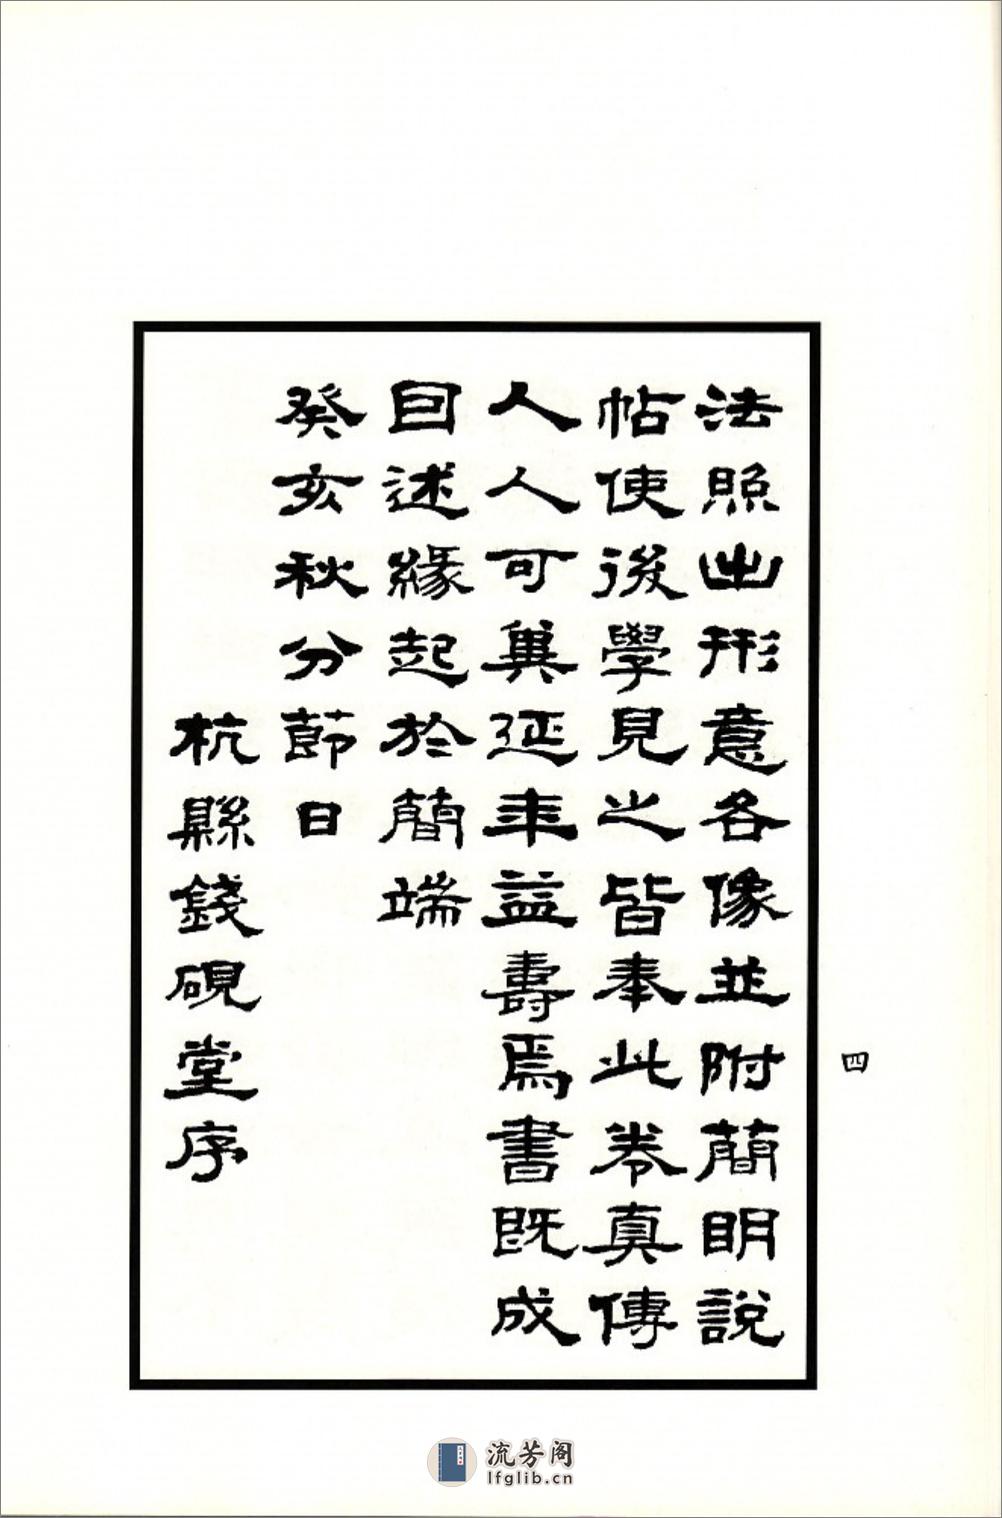 法照出形意各像並附簡明說
帖使後學見之皆奉此卷真傳
人人可冀延年益壽焉書既成
因述緣起於簡端
癸亥秋分節日
杭縣錢硯堂序
四
流芳阁
lfglib.cn